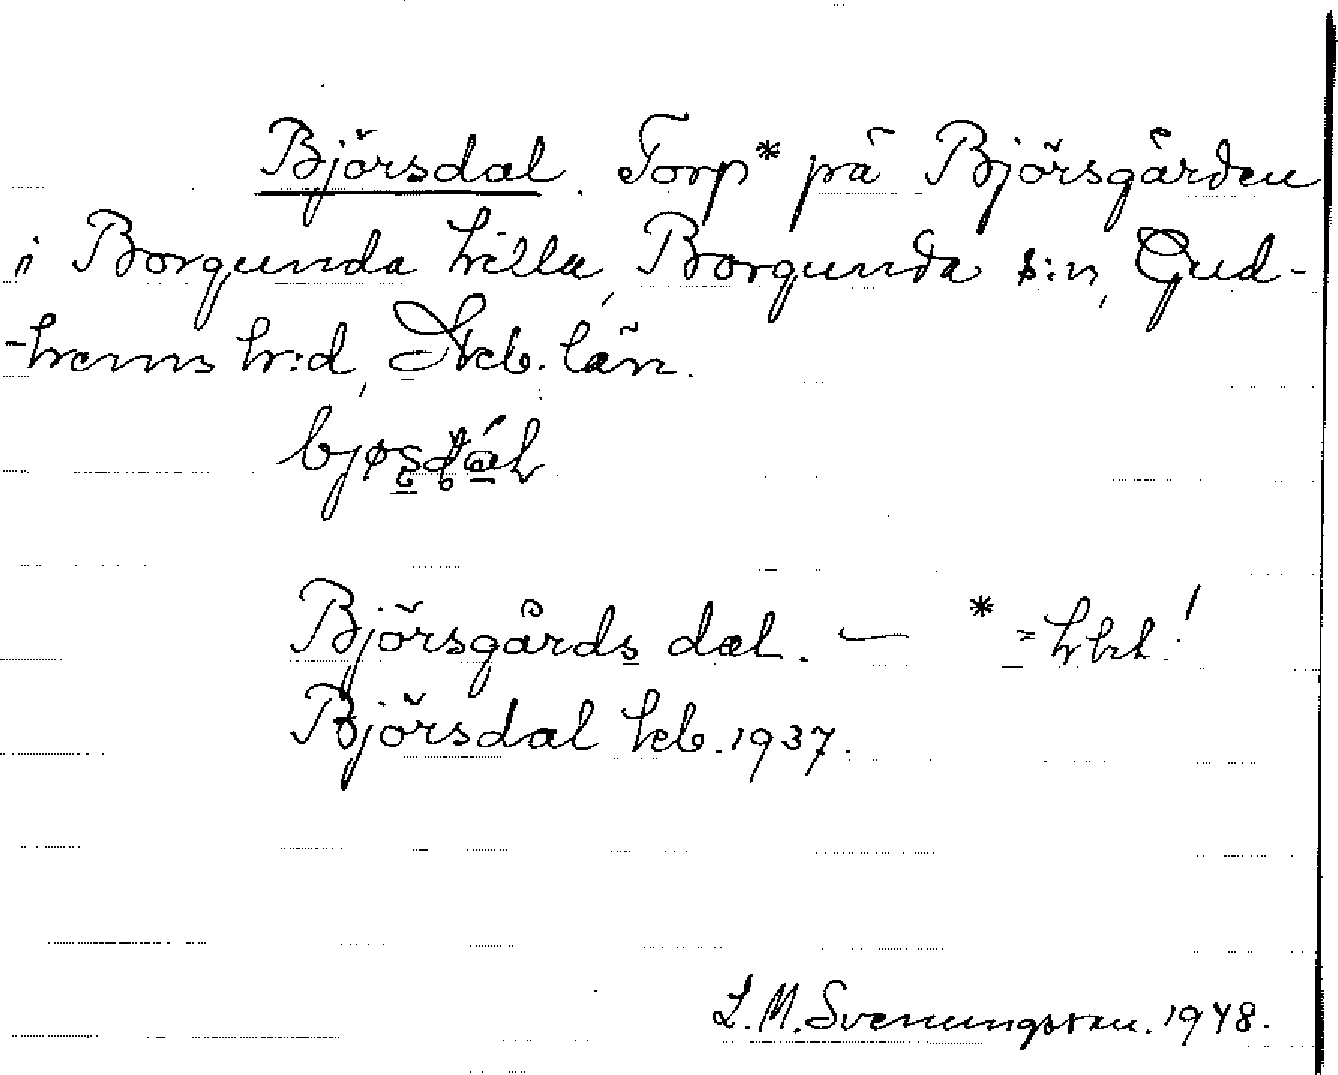 Björsdal. Torp* på Björsgården
i Borgunda by, Borgunda s:n, Gud-
-hems h:d, Skb. län.
Björsgårds dal. — * = hbt!
Björsdal heb. 1937.
L. M. Svenungsson. 1948.